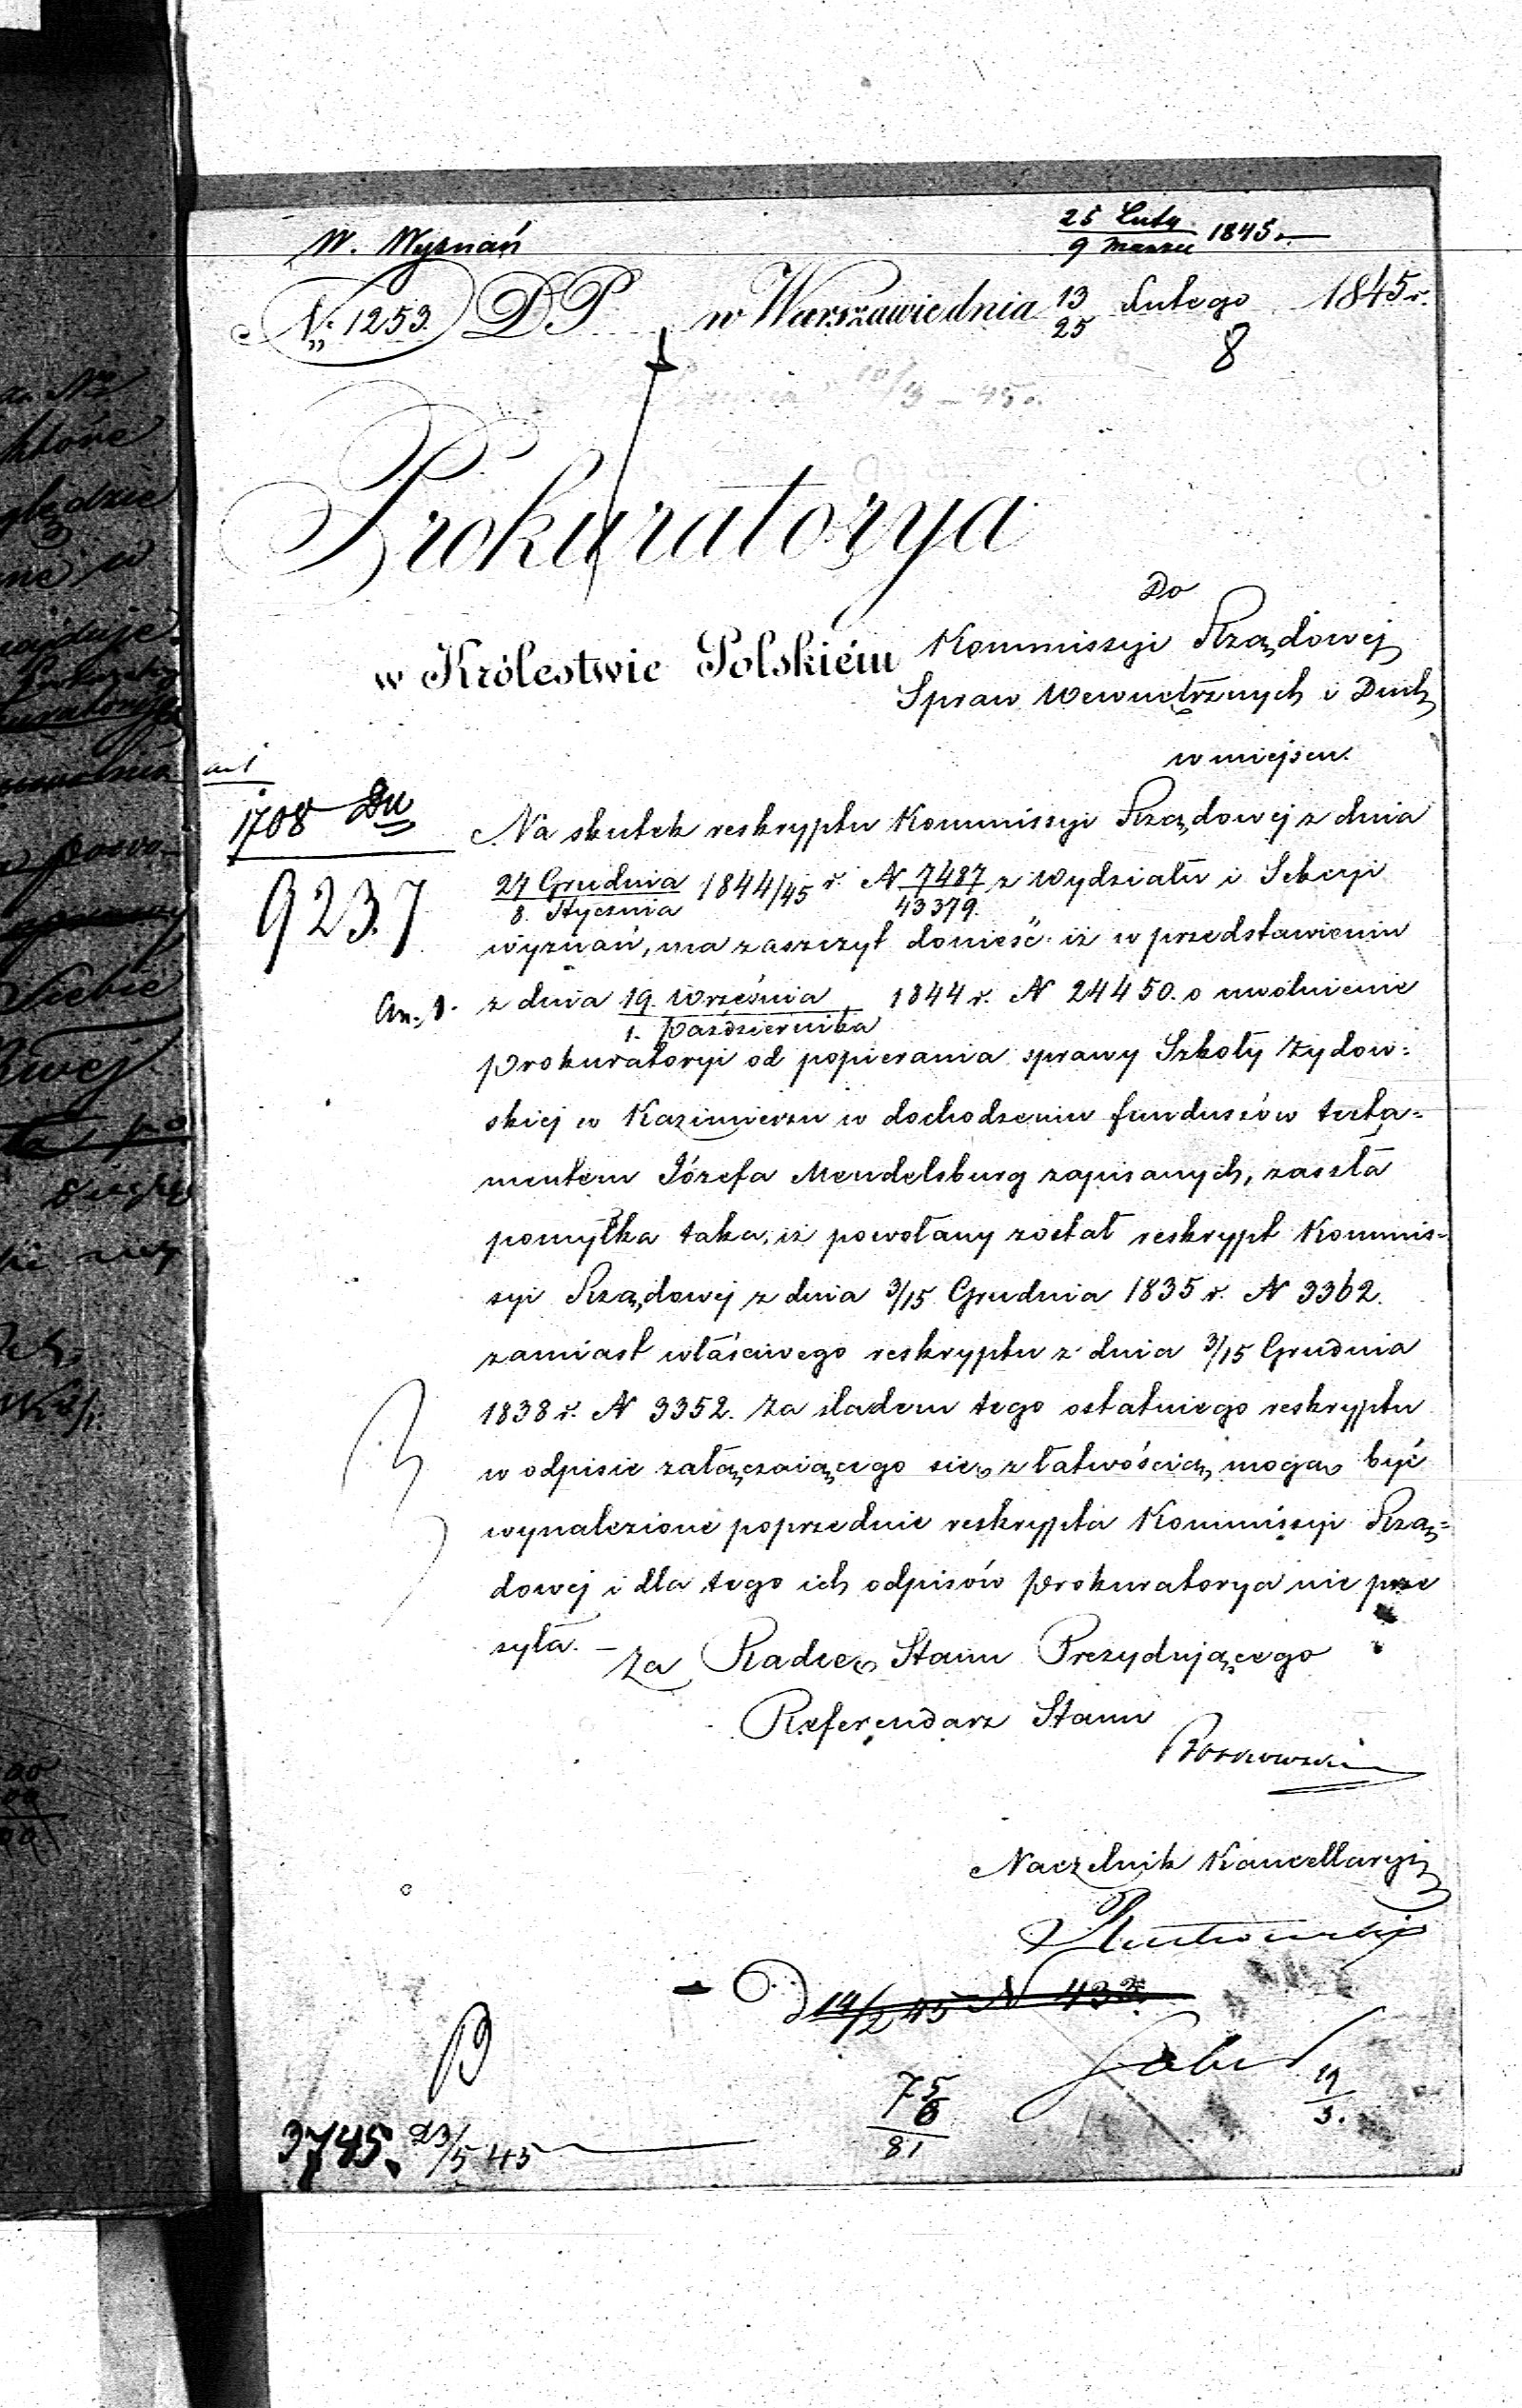 W. Wyznań
25 Luty
9 Marca 1845
N: 1253. DP w Warszawie dnia 13/25 Lutego 1845 r.
8
Prokuratorya
w Królestwie Polskiém
Do
Kommissyi Rządowej
Spraw Wewnętrznych i Duch
w miejscu.
an 1
1708 Du
9237
Na skutek reskryptu Kommissyi Rządowej z dnia
27 Grudnia / 8. Stycznia 1844/45 r. N 7487/43379. z Wydziału i Sekcyi
wyznań, ma zaszczyt donieść iż w przedstawieniu
An. 1.
z dnia 19. Września / 1. Października 1844 r. N 24450. o uwolnienie
Prokuratoryi od popierania sprawy Szkoły Żydow=
skiej w Kazimierzu w dochodzeniu funduszów testa=
mentem Józefa Mendelsburg zapisanych, zaszła
pomyłka taka, iż powołany został reskrypt Kommis=
syi Rządowej z dnia 3/15 Grudnia 1835 r. N 3362.
zamiast właściwego reskryptu z dnia 3/15 Grudnia
1838 r. N 3352. Za śladem tego ostatniego reskryptu
w odpisie załączaiącego się, z łatwością mogą być
wynalezione poprzednie reskrypta Kommissyi Rzą=
dowej i dla tego ich odpisów Prokuratorya nie prze
syła. –
Za Radcę Stanu Prezydującego
Referendarz Stanu
Naczelnik Kancellaryi
14/2 45 N 432.
75
6
81
19
3.
3745. 23/5 45